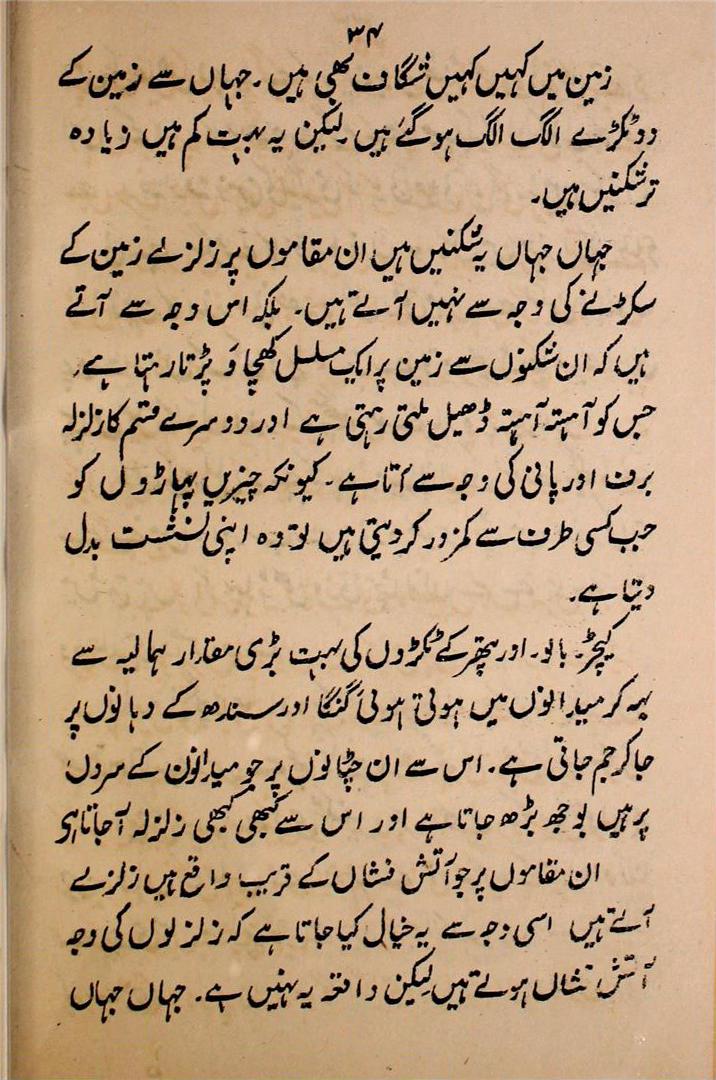 ۳۴
زمین میں کہیں کہیں شگاف بھی ہیں۔ جہاں سے زمین کے
دو ٹکڑے الگ الگ ہو گئے ہیں۔ لیکن یہ بہت کم ہیں زیادہ
تر شکنیں ہیں۔
جہاں جہاں یہ شکنیں ہیں ان مقاموں پر زلزلے زمین کے
سکڑنے کی وجہ سے نہیں آتے ہیں۔ بلکہ اس وجہ سے آتے
ہیں کہ ان شکنوں سے زمین پر ایک مسلسل کھچاؤ پڑتا رہتا ہے۔
جس کو آہستہ آہستہ ڈھیل ملتی رہتی ہے اور دوسرے قسم کا زلزلہ
برف اور پانی کی وجہ سے آتا ہے۔ کیونکہ چیزیں پہاڑوں کو
جب کسی طرف سے کمزور کر دیتی ہیں تو وہ اپنی نشست بدل
دیتا ہے۔
کیچڑ۔ بالو۔ اور پتھر کے ٹکڑوں کی بہت بڑی مقدار ہمالیہ سے
بہہ کر میدانوں میں ہوتی ہوئی گنگا اور سندھ کے دہانوں پر
جا کر جم جاتی ہے۔ اس سے ان چٹانوں پر جو میدانوں کے سروں
پر ہیں بوجھ بڑھ جاتا ہے اور اس سے کبھی کبھی زلزلہ آ جاتا ہی
ان مقاموں پر جو آتش فشاں کے قریب واقع ہیں زلزلے
آتے ہیں اسی وجہ سے یہ خیال کیا جاتا ہے کہ زلزلوں کی وجہ
آتش فشاں ہوتے ہیں لیکن واقعہ یہ نہیں ہے۔ جہاں جہاں